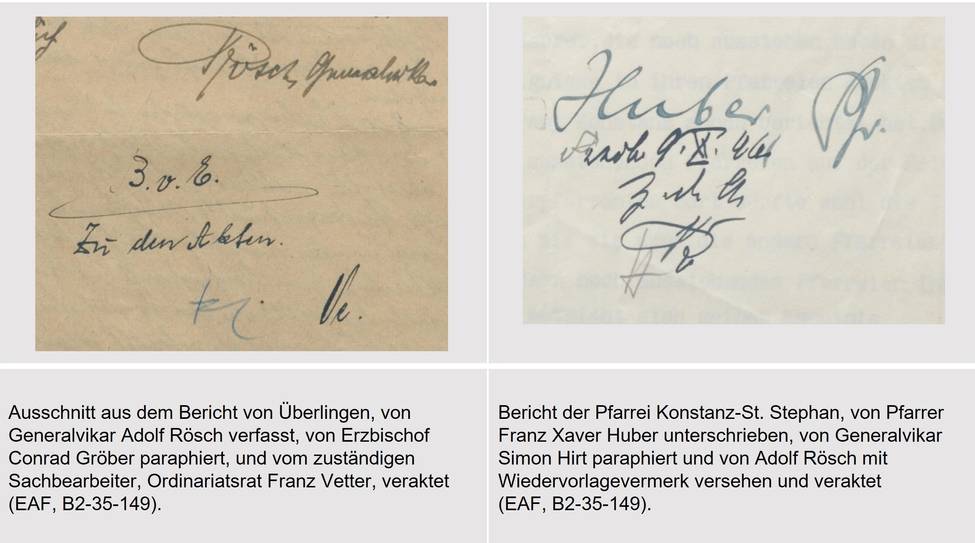 Rösch, Generalvikar
3. v. E.
Zu den Akten.
Ve.
Huber Pfr.
9. X. 46
Z. d. A.
Ausschnitt aus dem Bericht von Überlingen, von
Generalvikar Adolf Rösch verfasst, von Erzbischof
Conrad Gröber paraphiert, und vom zuständigen
Sachbearbeiter, Ordinariatsrat Franz Vetter, veraktet
(EAF, B2-35-149).
Bericht der Pfarrei Konstanz-St. Stephan, von Pfarrer
Franz Xaver Huber unterschrieben, von Generalvikar
Simon Hirt paraphiert und von Adolf Rösch mit
Wiedervorlagevermerk versehen und veraktet
(EAF, B2-35-149).